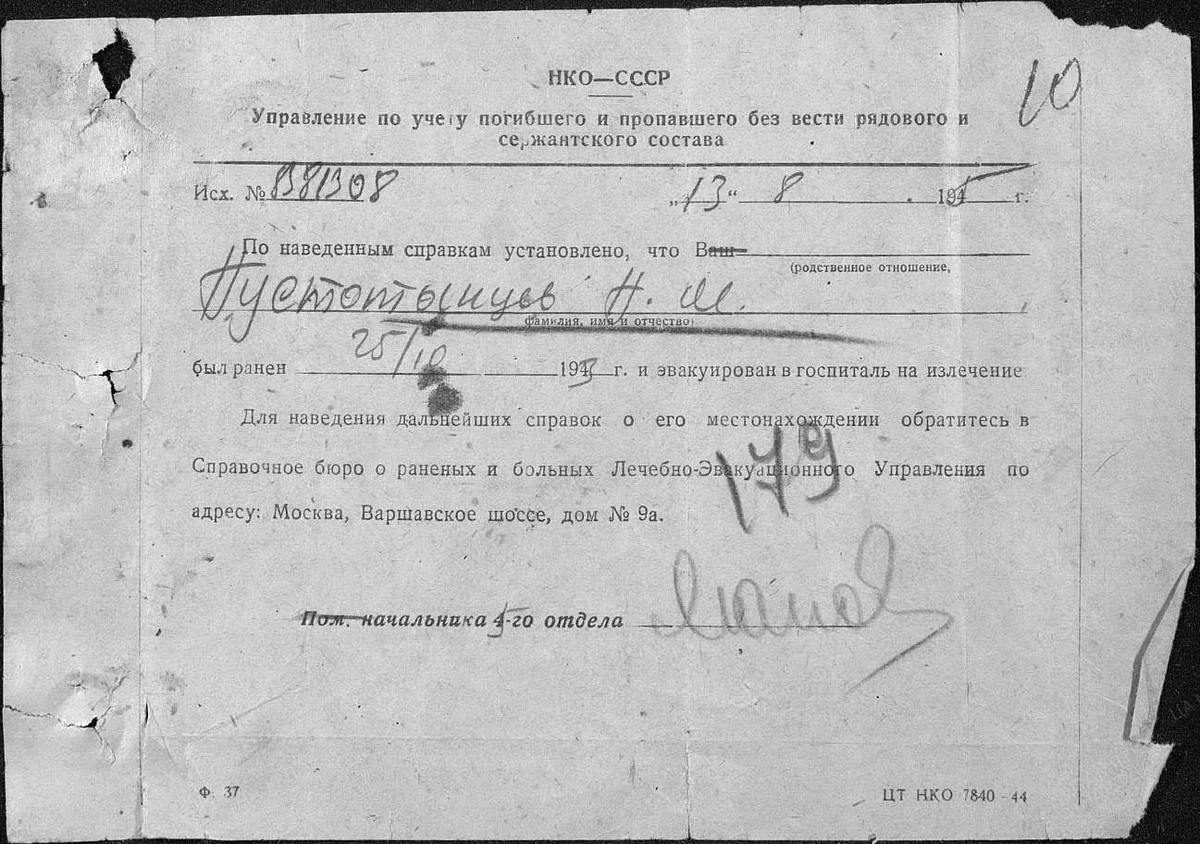 10
НКО—СССР
Управление по учету погибшего и пропавшего без вести рядового и
сержантского состава
Исх. № 1381308 „13“ 8 1945 г.
По наведенным справкам установлено, что Ваш
(родственное отношение,
Пустотынцев Н. М.
фамилия, имя и отчество)
был ранен 25/10 1943 г. и эвакуирован в госпиталь на излечение
Для наведения дальнейших справок о его местонахождении обратитесь в
Справочное бюро о раненых и больных Лечебно-Эвакуационного Управления по
адресу: Москва, Варшавское шоссе, дом № 9а.
179
Пом. начальника 5-го отдела
Ф. 37
ЦТ НКО 7840-44